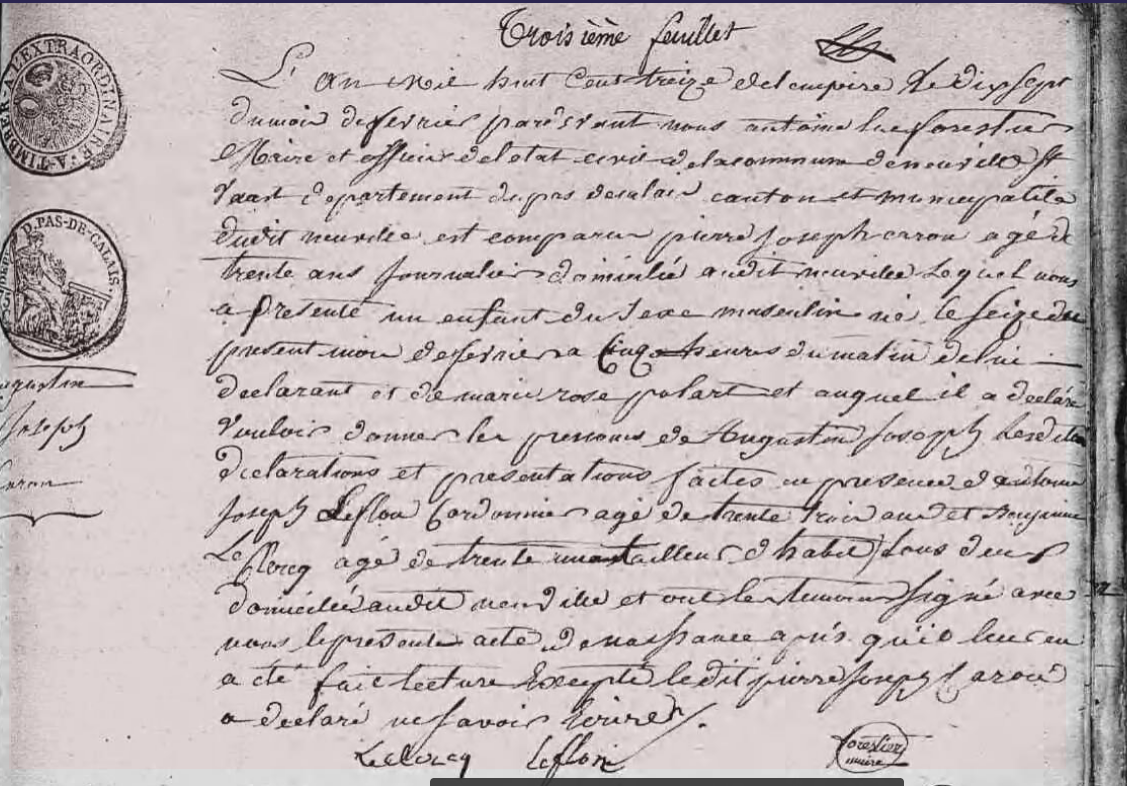 Troisième feuillet
A TIMBRER A L'EXTRAORDINAIRE
L'an mil huit Cent treize de lempire le dix sept
du mois de fevrier pardevant nous antoine luc forestier
Maire et officier de letat civil de la commune de neuville St
Vaast departement du pas de calais canton et municipalité
dudit neuville est comparu pierre Joseph carron agé de
trente ans journalier domicilié audit neuville Lequel nous
a presenté un enfant du Sexe masculin né le Seize du
present mois de fevrier a Cinq heures du matin de lui
D. PAS-DE-CALAIS
declarant et de marie rose polart et auquel il a declaré
Vouloir donner les prenoms de Augustin Joseph Lesdites
declarations et presentations faites en presence d antoine
Joseph Leflon Cordonnier agé de trente trois ans et Benjamin
Le Clercq agé de trente un tailleur d'habit tous deux
domiciliés audit neuville et ont les temoins signé avec
nous le present acte de naissance après qu'il leur en
a été fait lecture Excepté ledit pierre Joseph Caron
a declaré ne Savoir Ecrire
augustin
Joseph
Caron
Leclercq Leflon forestier
maire